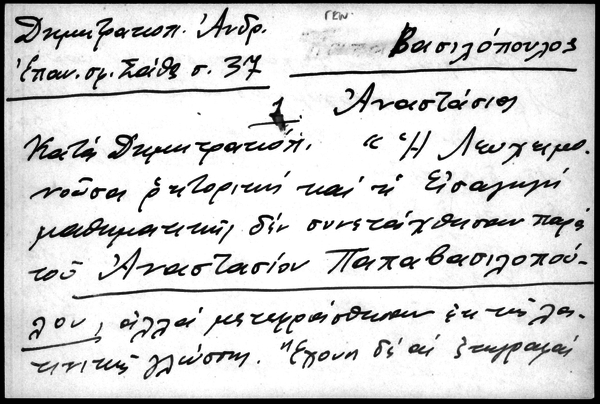 ΓΕΝ
Δημητρακοπ. Ἀνδρ.
Βασιλόπουλος
Ἐπαν. σμ. Σάθα σ. 37
1
Ἀναστάσιος
Κατὰ Δημητρακόπ. « Ἡ Λευχειμο-
νοῦσα ῥητορικὴ καὶ ἡ Εἰσαγωγὴ
μαθηματικῆς δὲν συνετάχθησαν παρὰ
τοῦ Ἀναστασίου Παπαβασιλοπού-
λου, ἀλλὰ μετεφράσθησαν ἐκ τῆς λα-
τινικῆς γλώσσης. Ἔχουσι δὲ αἱ ἐπιγραφαὶ